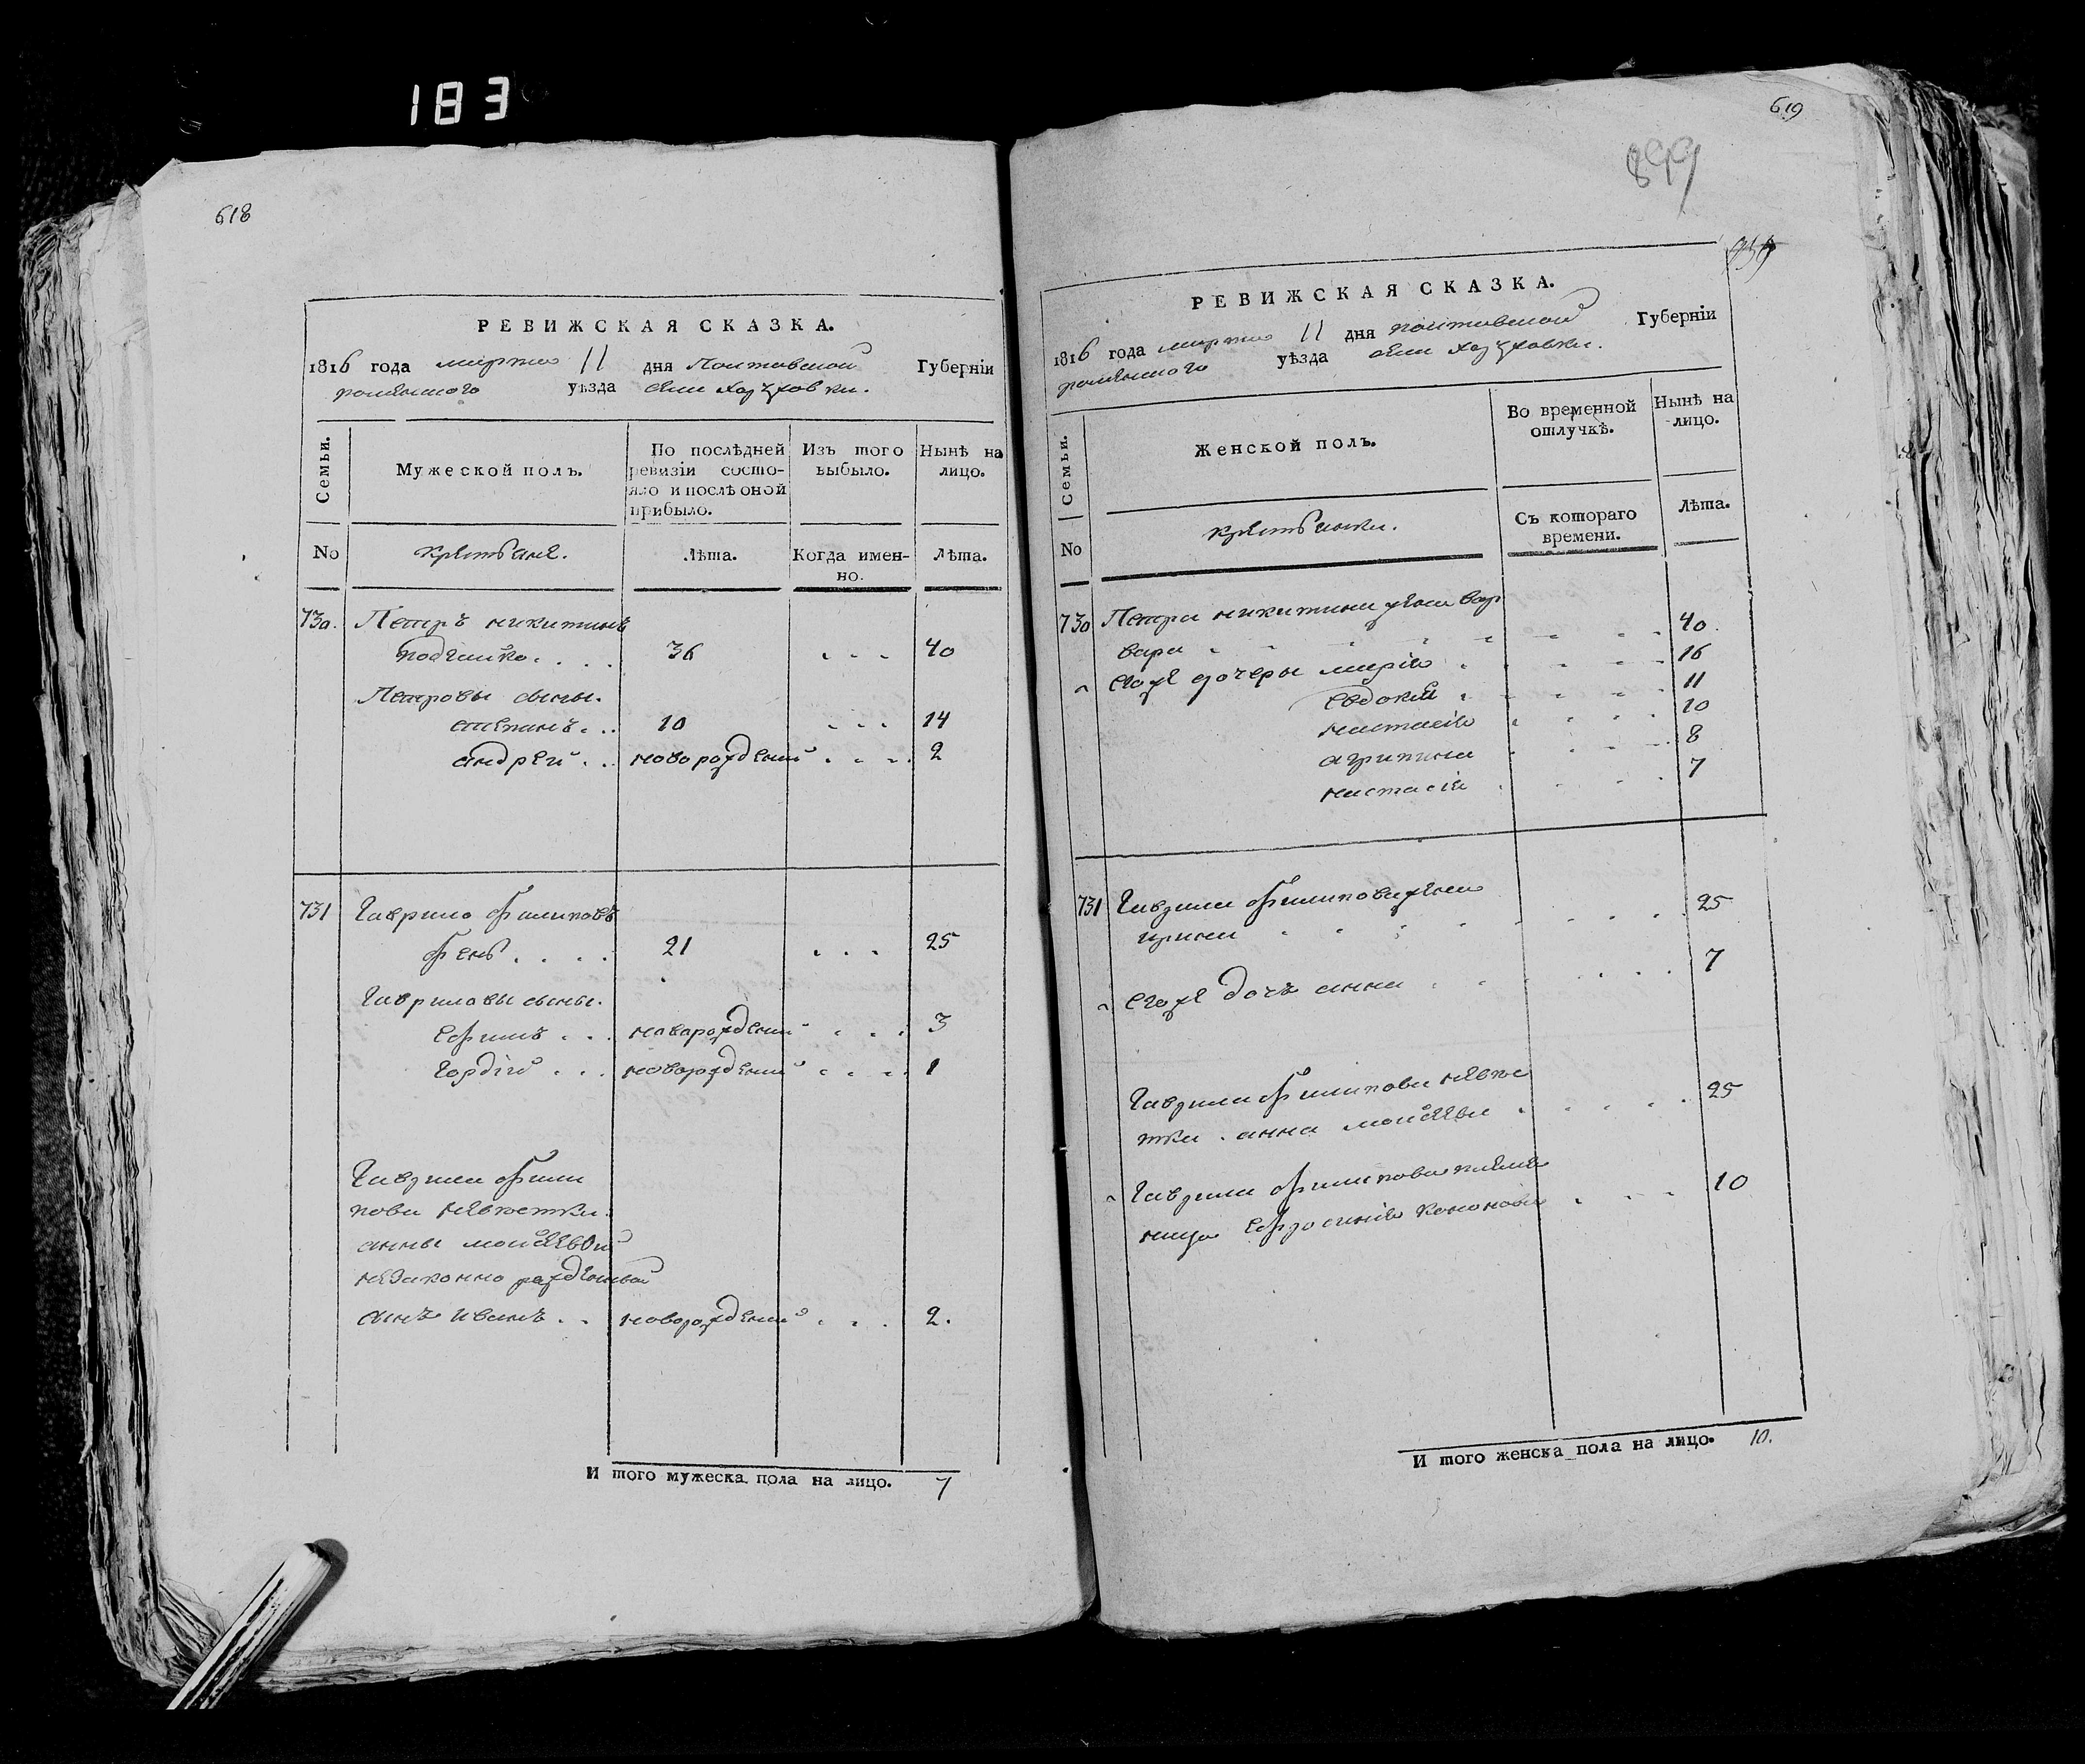 183
618
РЕВИЖСКАЯ СКАЗКА.
1816 года марта 11 дня Полтавской Губерніи
роменского уѣзда села
Семьи.
Мужеской полъ.
По послѣдней ревизіи состояло и послѣ оной прибыло.
Изъ того выбыло.
Нынѣ на лицо.
No
крестьяне.
Лѣта.
Когда именно.
Лѣта.
730. Петръ никитинъ
36 . . . 40
Петровы сыны.
степанъ . . 10 . . . 14
андрей . . новорождений . . . . 2
731 Гаврило филиповъ
фень . . . . 21 . . . 25
Гавриловы сыны.
ефимъ . . . новорождений . . . 3
гордій . . . новорождений . . . . 1
Гаврила фили
пова невестки
анны моисеевой
незаконно рожденной
сынъ иванъ . . новорождений . . . 2.
И того мужеска пола на лицо. 7
619
899
РЕВИЖСКАЯ СКАЗКА.
1816 года марта 11 дня полтавской Губерніи
роменского уѣзда села
Семьи.
Женской полъ.
Во временной отлучкѣ.
Нынѣ на лицо.
No
крестьянки.
Съ котораго времени.
Лѣта.
730 Петра никитина жена вар
вара 40
его же дочеры марія 16
евдокія 11
настасія 10
агрипина 8
настасія 7
731 Гаврила филипова жена
ирина 25
его же дочъ анна 7
Гаврила филипова невес
тка . анна моисеева 25
Гаврила филипова племе
ница ефросинія кононова 10
И того женска пола на лицо. 10.